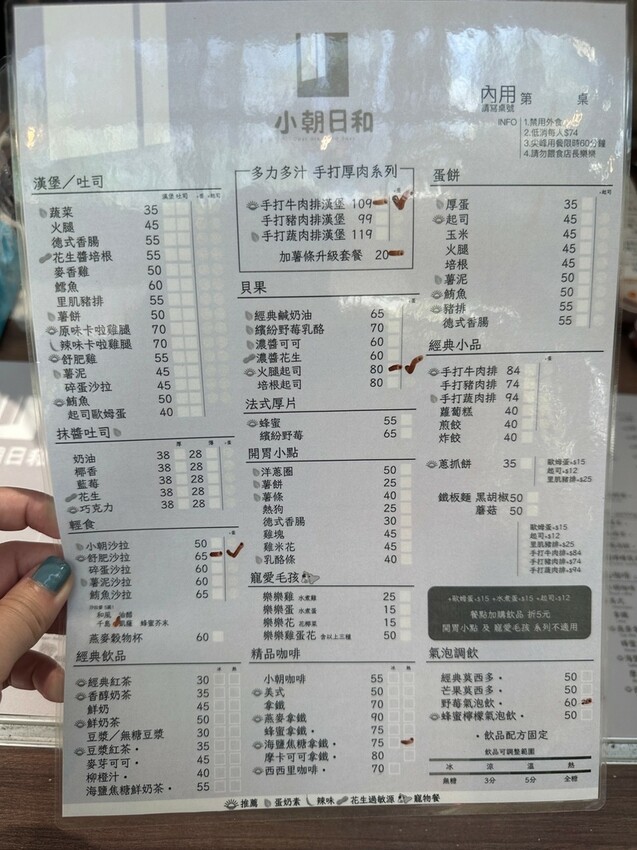 小朝日和
內用 第 桌
請寫桌號
INFO
1.禁用外食
2.低消每人$74
3.尖峰用餐限時60分鐘
4.請勿餵食店長樂樂
漢堡／吐司
漢堡 吐司 +蛋 +起司
蔬菜 35
火腿 45
德式香腸 55
花生醬培根 55
麥香雞 50
鱈魚 60
里肌豬排 55
薯餅 50
原味卡啦雞腿 70
辣味卡啦雞腿 70
舒肥雞 55
薯泥 45
碎蛋沙拉 45
鮪魚 50
起司歐姆蛋 40
抹醬吐司
厚 薄 +蛋
奶油 38 28
椰香 38 28
藍莓 38 28
花生 38 28
巧克力 38 28
輕食
+蛋
小朝沙拉 50
舒肥沙拉 65
碎蛋沙拉 60
薯泥沙拉 55
鮪魚沙拉 65
和風 油醋
千島 凱薩 蜂蜜芥末
燕麥穀物杯 60
經典飲品
冰 熱
經典紅茶 30
香醇奶茶 35
鮮奶 45
鮮奶茶 50
豆漿／無糖豆漿 30
豆漿紅茶• 35
麥芽可可• 45
柳橙汁• 40
海鹽焦糖鮮奶茶• 55
多力多汁 手打厚肉系列
手打牛肉排漢堡 109
手打豬肉排漢堡 99
手打蔬肉排漢堡 119
加薯條升級套餐 20
貝果
經典鹹奶油 65
繽紛野莓乳酪 70
濃醬可可 60
濃醬花生 60
火腿起司 80
培根起司 80
法式厚片
蜂蜜 55
繽紛野莓 65
開胃小點
洋蔥圈 50
薯餅 25
薯條 40
熱狗 25
德式香腸 30
雞塊 45
雞米花 45
乳酪條 40
寵愛毛孩
樂樂雞 水煮雞 25
樂樂蛋 水煮蛋 15
樂樂花 花椰菜 15
樂樂雞蛋花 含以上三種 50
精品咖啡
冰 熱
小朝咖啡 55
美式 50
拿鐵 70
燕麥拿鐵 90
蜂蜜拿鐵• 75
海鹽焦糖拿鐵• 75
摩卡可可拿鐵• 80
西西里咖啡• 70
蛋餅
+起司
厚蛋 35
起司 45
玉米 45
火腿 45
培根 45
薯泥 50
鮪魚 50
豬排 55
德式香腸 55
經典小品
+蛋
手打牛肉排 84
手打豬肉排 74
手打蔬肉排 94
蘿蔔糕 40
煎餃 40
炸餃 40
蔥抓餅 35
歐姆蛋+$15
起司+$12
里肌豬排+$25
鐵板麵 黑胡椒 50
蘑菇 50
歐姆蛋+$15
起司+$12
里肌豬排+$25
手打牛肉排+$84
手打豬肉排+$74
手打蔬肉排+$94
+歐姆蛋+$15 +水煮蛋+$15 +起司+$12
餐點加購飲品 折5元
開胃小點 及 寵愛毛孩 系列不適用
氣泡調飲
經典莫西多• 50
芒果莫西多• 50
野莓氣泡飲• 60
蜂蜜檸檬氣泡飲• 50
• 飲品配方固定
飲品可調整範圍
冰 涼 溫 熱
無糖 3分 5分 全糖
推薦 蛋奶素 辣味 花生過敏源 寵物餐